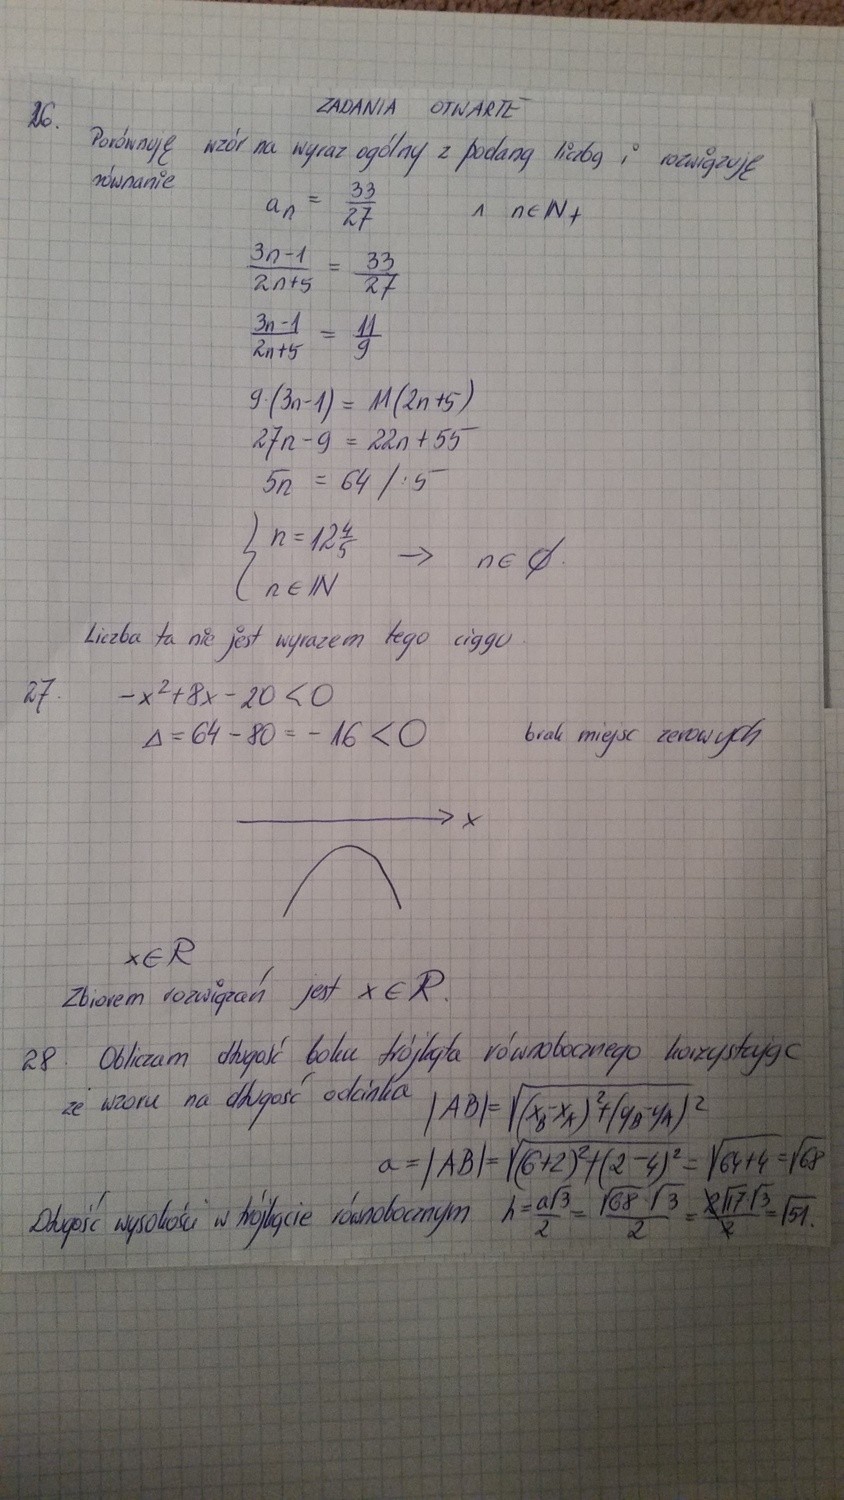 ZADANIA OTWARTE
26.
Porównuję wzór na wyraz ogólny z podaną liczbą i rozwiązuję
równanie
a_n = 33/27 ∧ n∈N+
(3n-1)/(2n+5) = 33/27
(3n-1)/(2n+5) = 11/9
9·(3n-1) = 11(2n+5)
27n-9 = 22n+55
5n = 64 /:5
{ n = 12 4/5
n∈N → n∈ ∅.
Liczba ta nie jest wyrazem tego ciągu.
27. -x²+8x-20<0
Δ = 64-80 = -16 <0 brak miejsc zerowych
x
x∈R
Zbiorem rozwiązań jest x∈R.
28. Obliczam długość boku trójkąta równobocznego korzystając
ze wzoru na długość odcinka |AB| = √(x_B-x_A)²+(y_B-y_A)²
a = |AB| = √(6+2)²+(2-4)² = √64+4 = √68
Długość wysokości w trójkącie równobocznym h = a√3/2 = √68·√3/2 = 2√17√3/2 = √51.